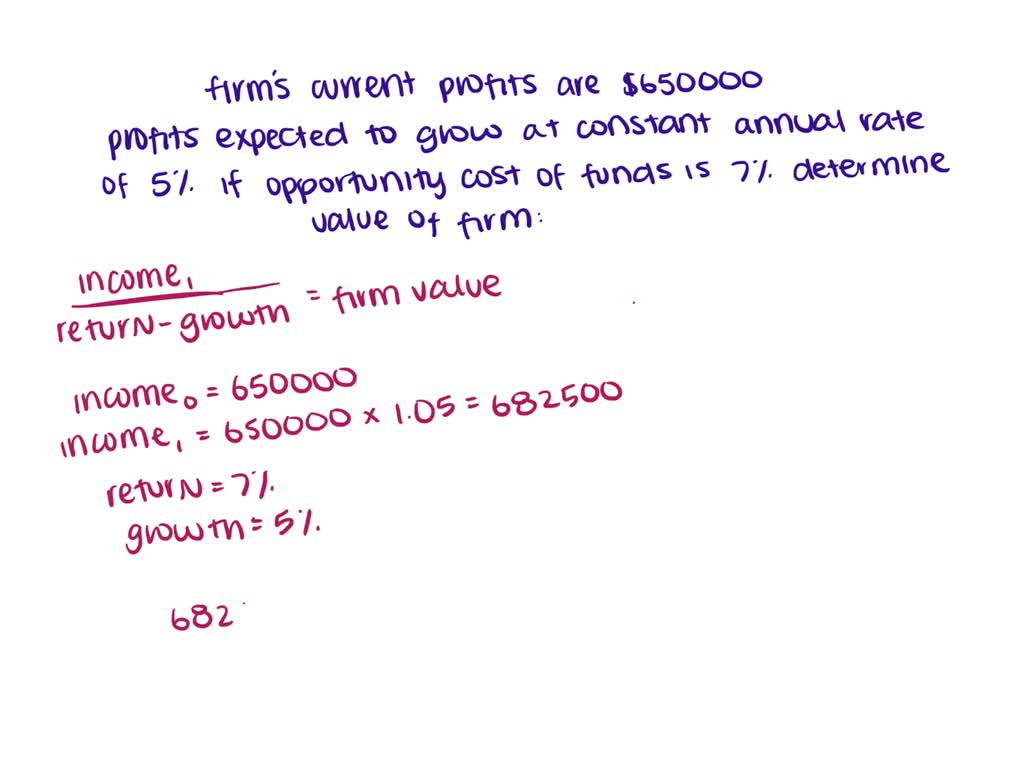 firm's current profits are $650000
profits expected to grow at constant annual rate
of 5% if opportunity cost of funds is 7% determine
value of firm:
income₁
return - growth = firm value
income₀ = 650000
income₁ = 650000 x 1.05 = 682500
return = 7%
growth = 5%
682